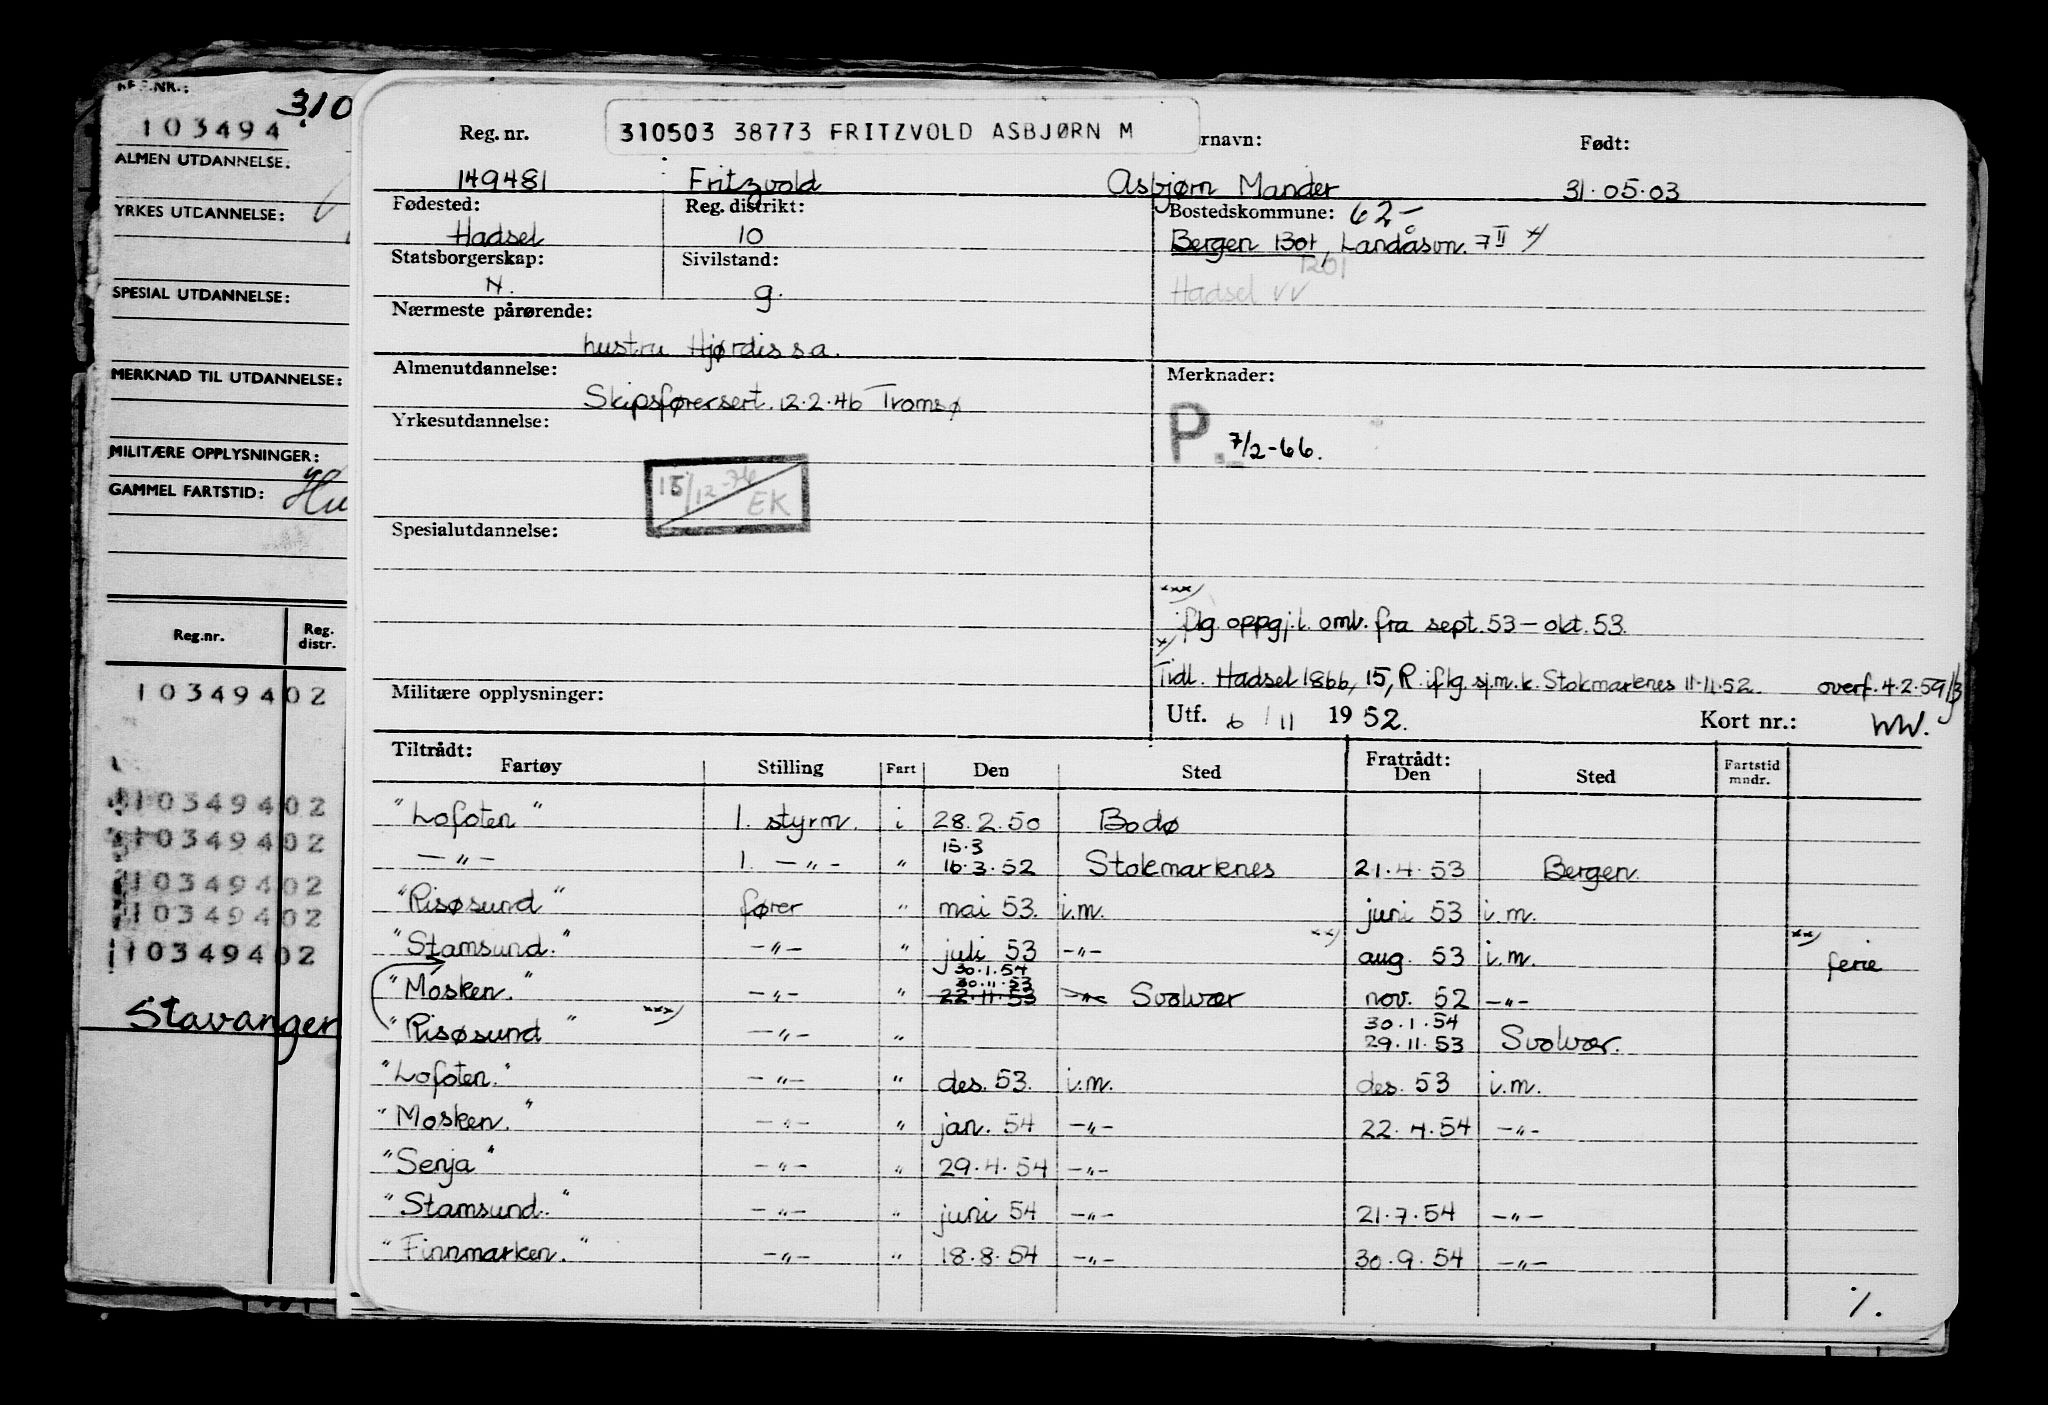 REG.NR.:
310
103494
ALMEN UTDANNELSE.
YRKES UTDANNELSE:
SPESIAL UTDANNELSE:
MERKNAD TIL UTDANNELSE:
MILITÆRE OPPLYSNINGER:
GAMMEL FARTSTID:
Reg.nr. Reg. distr.
10349402
10349402
10349402
10349402
10349402
10349402
Stavanger
Reg. nr. 310503 38773 FRITZVOLD ASBJØRN M rnavn: Født:
149481 Fritzvold Asbjørn Mander 31.05.03
Fødested: Reg. distrikt: Bostedskommune: 62-
Hadsel 10 Bergen 1301, Landåsvn. 7 II x)
Statsborgerskap: Sivilstand: 1201
N. g. Hadsel vv
Nærmeste pårørende:
hustru Hjørdis s.a.
Almenutdannelse: Merknader:
Skipsførersert. 12.2.46 Tromsø
Yrkesutdannelse: P. 7/2-66.
15/12-76 EK
Spesialutdannelse:
xxx)
iflg. oppgj.l. omb. fra sept. 53 - okt. 53.
x)
Tidl. Hadsel 1866, 15, R. iflg. sj.m.k. Stokmarknes 11.11.52. overf. 4.2.59/
Militære opplysninger: Utf. 6/11 1952. Kort nr.: WW.
Tiltrådt: Fratrådt:
Fartøy Stilling Fart Den Sted Den Sted Fartstid mndr.
"Lofoten" 1. styrm. i 28.2.50 Bodø
15.3
-"- 1. -"- " 16.3.52 Stokmarknes 21.4.53 Bergen
"Risøsund" fører " mai 53. i.m. juni 53 i.m.
"Stamsund." -"- " juli 53 -"- xx) aug. 53 i.m. xx) ferie
30.1.54
30.11.53
"Mosken." -"- " 22.11.53 -"- Svolvær nov. 52 -"-
30.1.54
"Risøsund" xxx) -"- " 29.11.53 Svolvær.
"Lofoten." -"- " des. 53. i.m. des. 53 i.m.
"Mosken." -"- " jan. 54 -"- 22.4.54 -"-
"Senja" -"- " 29.4.54 -"-
"Stamsund." -"- " juni 54 -"- 21.7.54 -"-
"Finnmarken." -"- " 18.8.54 -"- 30.9.54 -"-
%.